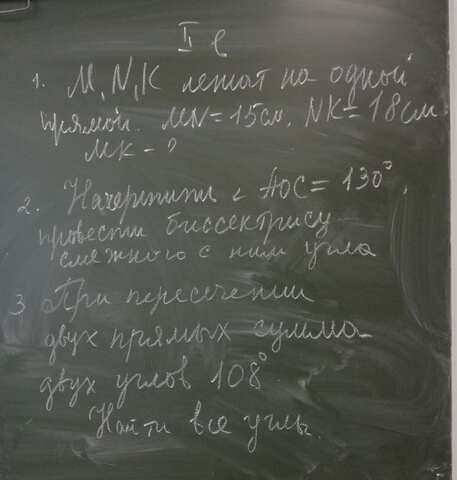 II в
1. M, N, K лежат на одной
прямой. MN = 15 см, NK = 18 см
MK - ?
2. Начертить ∠ AOC = 130°,
провести биссектрису
смежного с ним угла
3 При пересечении
двух прямых сумма
двух углов 108°
Найти все углы.